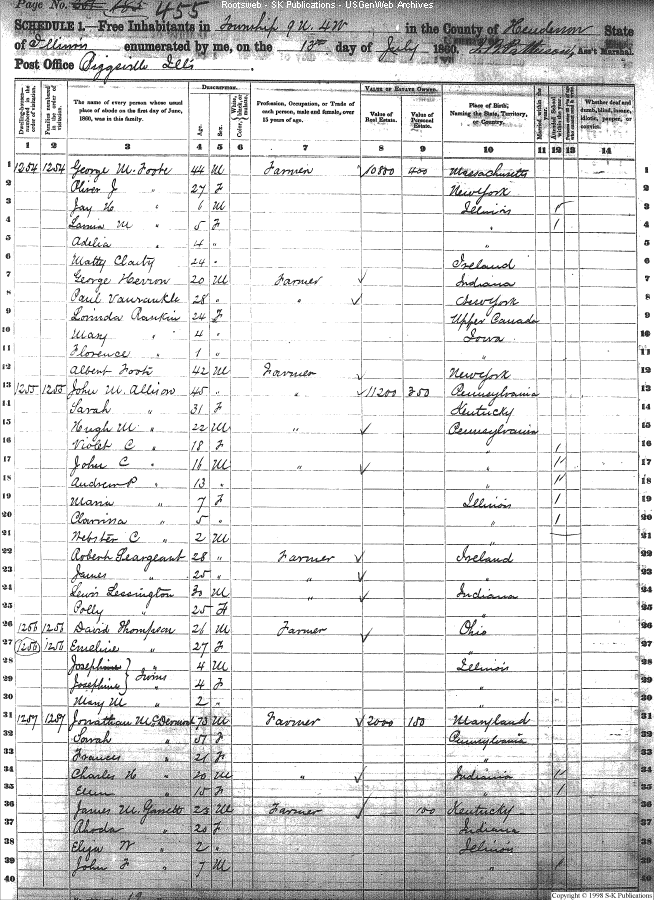 Rootsweb - SK Publications - USGenWeb Archives
Page No. 455
SCHEDULE 1.—Free Inhabitants in Township 9 N. 4 W in the County of Henderson State
of Illinois enumerated by me, on the 13th day of July 1860. Ass't Marshal.
Post Office Biggsville Ills
Dwelling-houses numbered in the order of visitation. Families numbered in the order of visitation. The name of every person whose usual place of abode on the first day of June, 1860, was in this family. DESCRIPTION. Age. Sex. Color Profession, Occupation, or Trade of each person, male and female, over 15 years of age. VALUE OF ESTATE OWNED. Value of Real Estate. Value of Personal Estate. Place of Birth, Naming the State, Territory, or Country. Married within the year. Attended School within the year. Whether deaf and dumb, blind, insane, idiotic, pauper, or convict.
1 2 3 4 5 6 7 8 9 10 11 12 13 14
1 1254 1254 George M. Foote 44 M Farmer 10800 400 Massachusetts 1
2 Oliver J " 27 F New York 2
3 Jay H " 6 M Illinois 1 3
4 M " 5 F " 1 4
5 Adelia " 4 " " 5
6 Matty 24 " Ireland 6
7 George Herron 20 M Farmer Indiana 7
8 Paul Vanrankle 28 " " New York 8
9 Lorinda Rankin 24 F Upper Canada 9
10 Mary " 4 " Iowa 10
11 Florence " 1 " " 11
12 Albert Foote 42 M Farmer New York 12
13 1255 1255 John M. Allison 45 " " 11200 350 Pennsylvania 13
14 Sarah " 31 F Kentucky 14
15 Hugh M " 22 M " Pennsylvania 15
16 Violet C " 18 F " 1 16
17 John C " 16 M " " 1 17
18 Andrew P " 13 " " 1 18
19 Maria " 7 F Illinois 1 19
20 Clarrissa " 5 " " 1 20
21 Webster C " 2 M 21
22 Robert Seargeant 28 " Farmer Ireland 22
23 James " 25 " " " 23
24 Lewis Lessington 30 M " Indiana 24
25 Polly " 25 F " 25
26 1256 1256 David Thompson 26 M Farmer Ohio 26
27 1256 1256 Emeline " 27 F " 27
28 Josephine } Twins " 4 M Illinois 28
29 Josephine } " 4 F " 29
30 Mary M " 2 " " 30
31 1257 1257 Jonathan McDermont 73 M Farmer 2000 150 Maryland 31
32 Sarah " 57 F Pennsylvania 32
33 Frances " 21 F " 33
34 Charles H " 20 M " Indiana 1 34
35 Ellen " 15 F " 1 35
36 James M. Garrett 23 M Farmer 100 Kentucky 36
37 Rhoda " 20 F Indiana 37
38 Eliza W " 2 " Illinois 38
39 John F " 7 M " 1 39
40 40
Copyright © 1998 S-K Publications